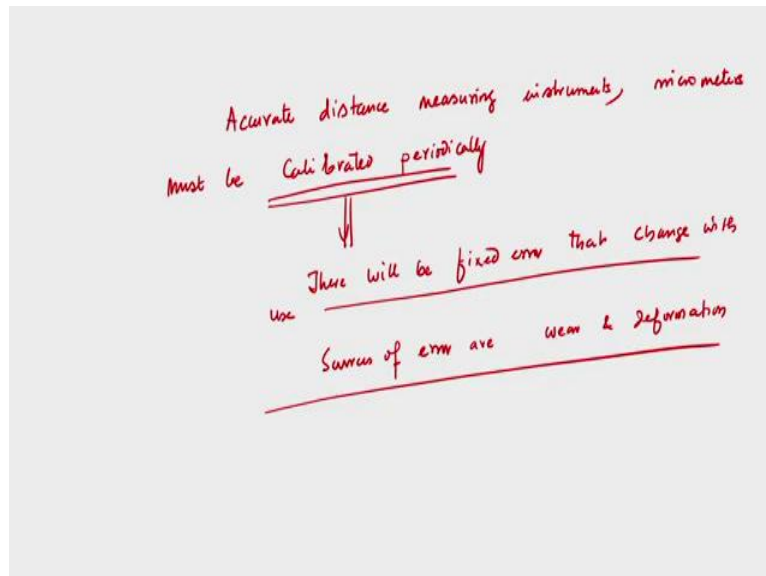 Accurate distance measuring instruments, micrometers
must be Calibrated periodically
There will be fixed error that change with
use
Sources of error are wear & deformation